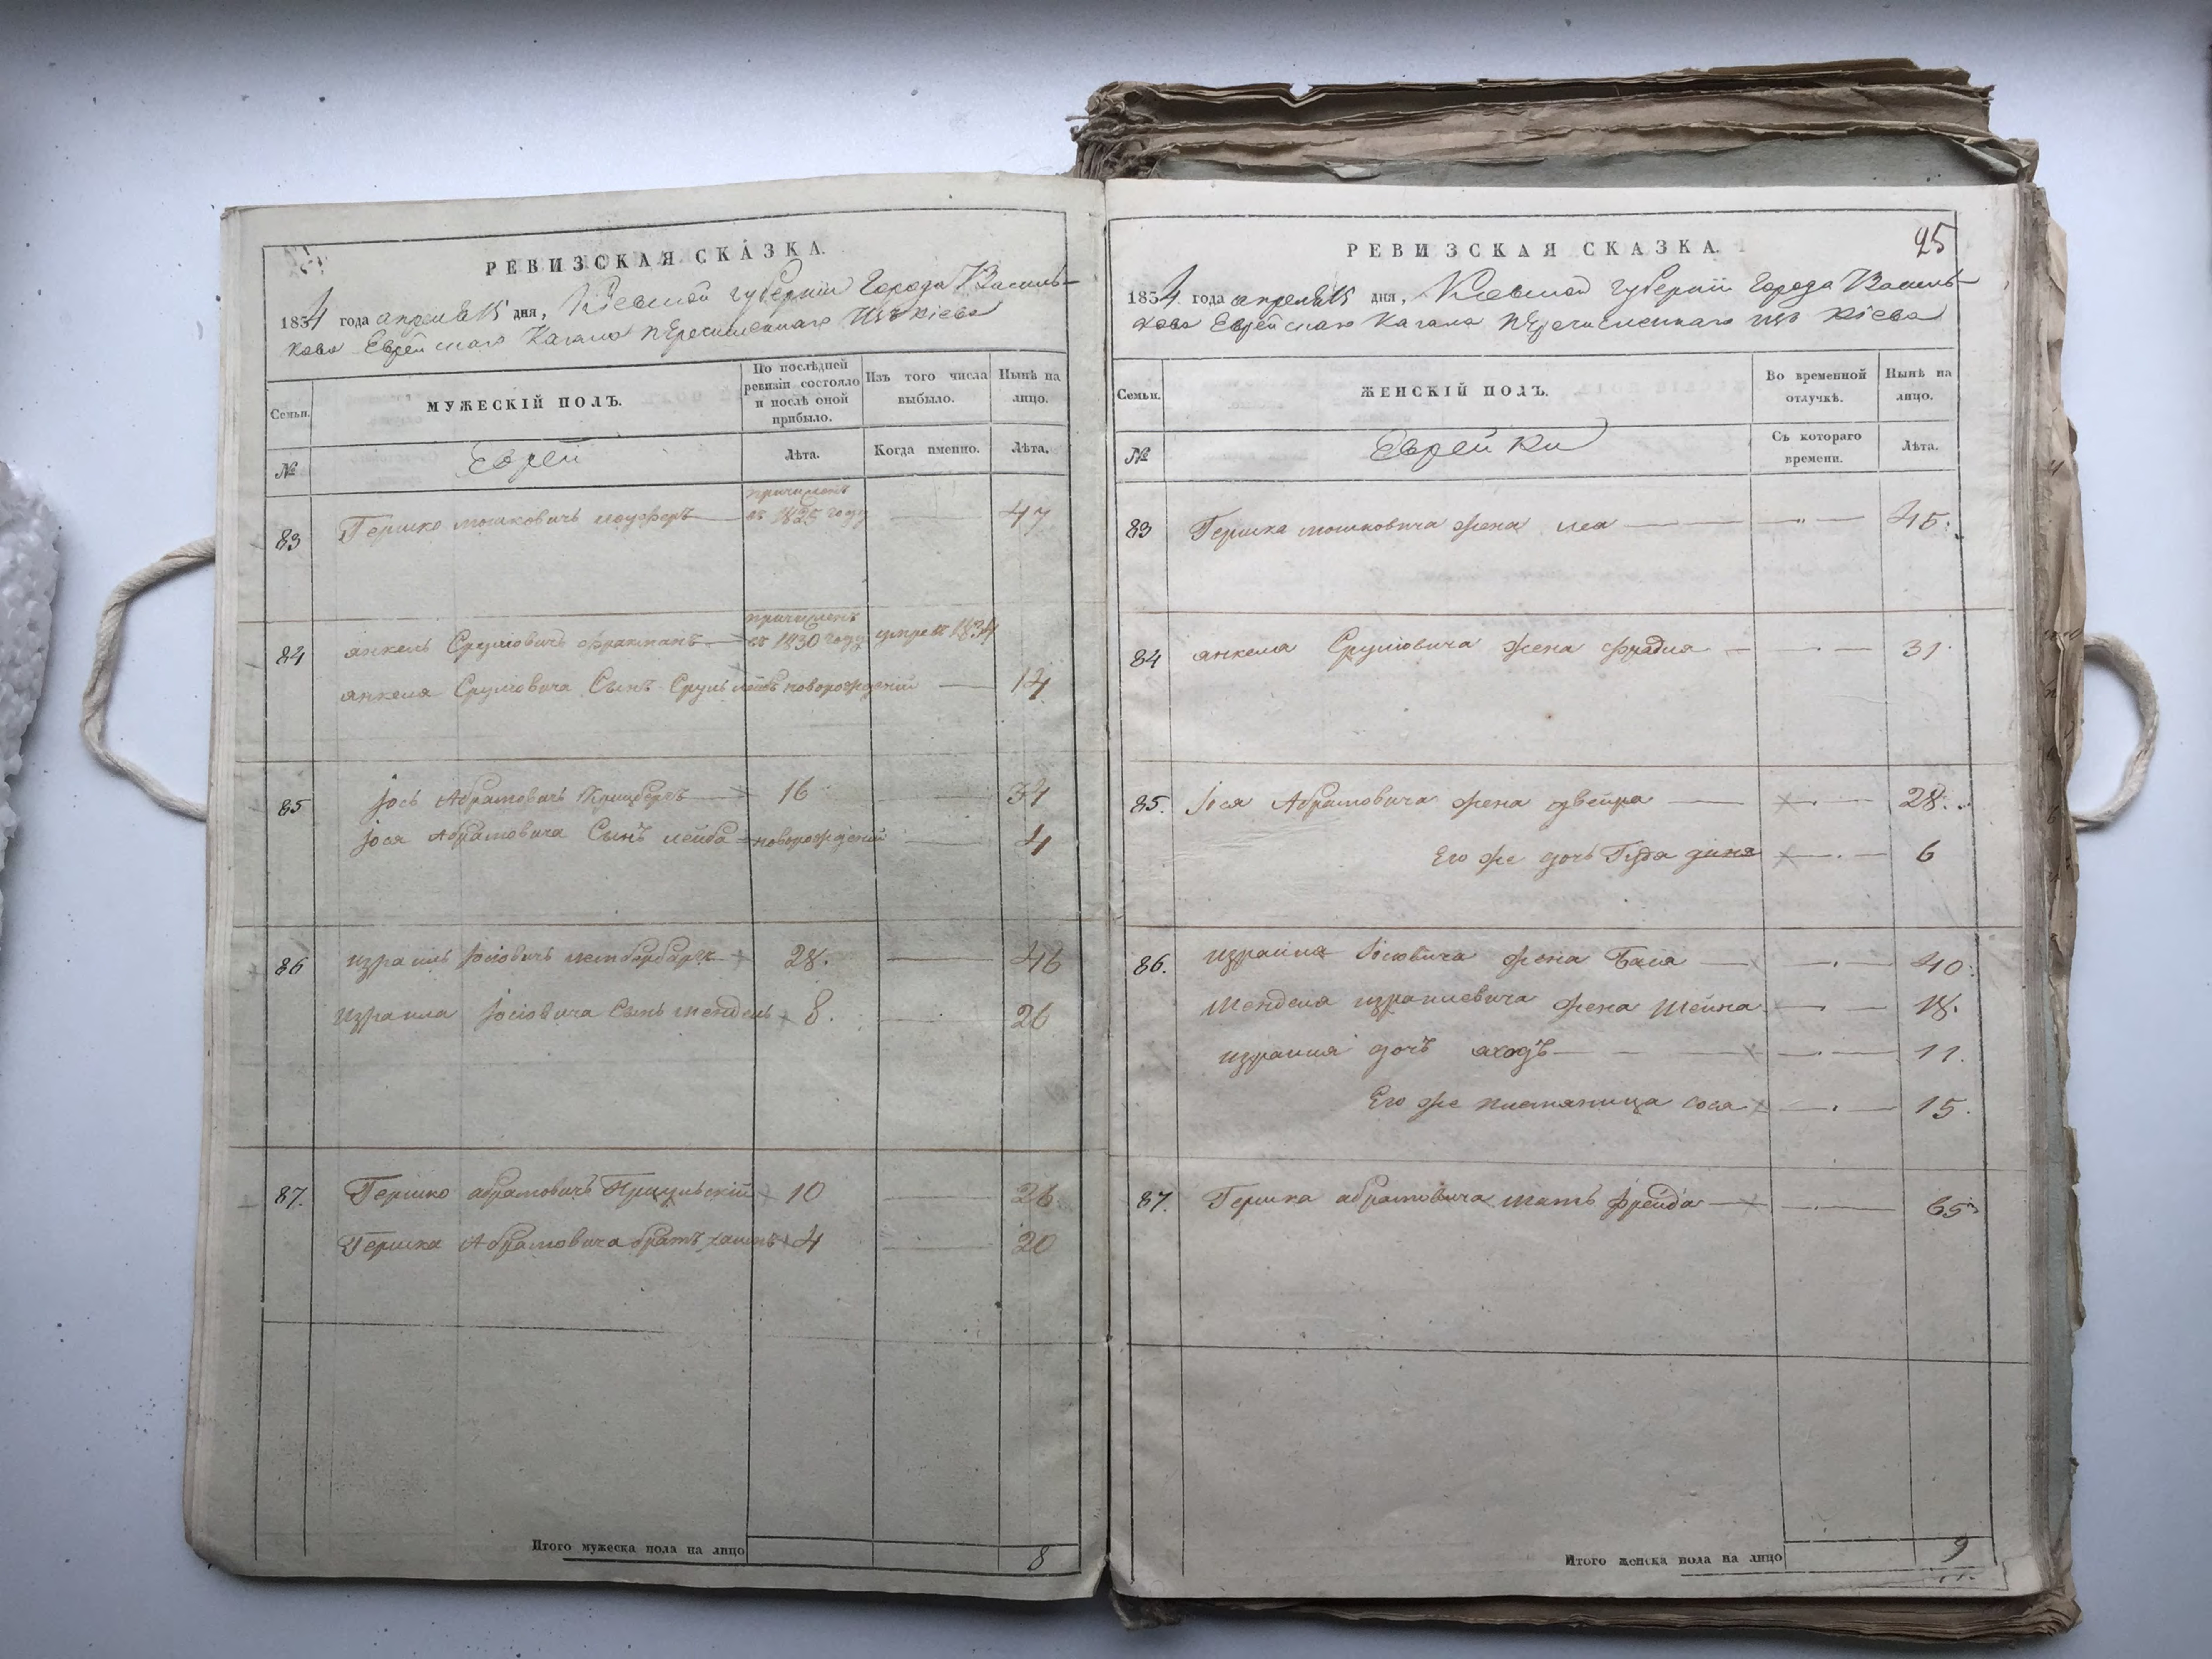 РЕВИЗСКАЯ СКАЗКА.
1854 года апреля 15 дня, Киевской губернии Города Василь-
кова Еврейскаго Кагала перечисленнаго Изъ Кіева
Семьи.
МУЖЕСКІЙ ПОЛЪ.
По послѣдней ревизіи состояло и послѣ оной прибыло.
Изъ того числа выбыло.
Нынѣ на лицо.
№
Еврей
Лѣта.
Когда именно.
Лѣта.
причисленъ
83 Гершко мошковичь въ 1835 году 47
причисленъ
84 янкель Срулiовичь въ 1830 году умре въ 1834
янкеля Срулiовича Сынъ Сруль лейбъ новорожденiй 14
85 Іось Абрамовичь 16 34
Іося Абрамовича Сынъ лейба новорожденiй 4
86 израиль Іосiовичь 28. 46
израила Іосiовича Сынъ мендель 8. 26
87. Гершко абрамовичь 10 26
Гершка Абрамовича братъ хаимъ 4 20
Итого мужеска пола на лицо 8
25
РЕВИЗСКАЯ СКАЗКА.
1854 года апреля 15 дня, Киевской губернии Города Василь-
кова Еврейскаго Кагала перечисленнаго изъ Кіева
Семьи.
ЖЕНСКІЙ ПОЛЪ.
Во временной отлучкѣ.
Нынѣ на лицо.
№
Еврейки
Съ котораго времени.
Лѣта.
83 Гершка мошковича жена лея 45.
84 янкеля Срулiовича жена фрадля 31.
85. Іося Абрамовича жена двейра 28.
Его же дочь Гуда дина 6
86. израиля Іосiовича жена Бася 40.
Менделя израилевича жена шейна 18.
израиля дочъ 11.
Его же племяница сося 15.
87. Гершка абрамовича мать фрейда 65
Итого женска пола на лицо 9